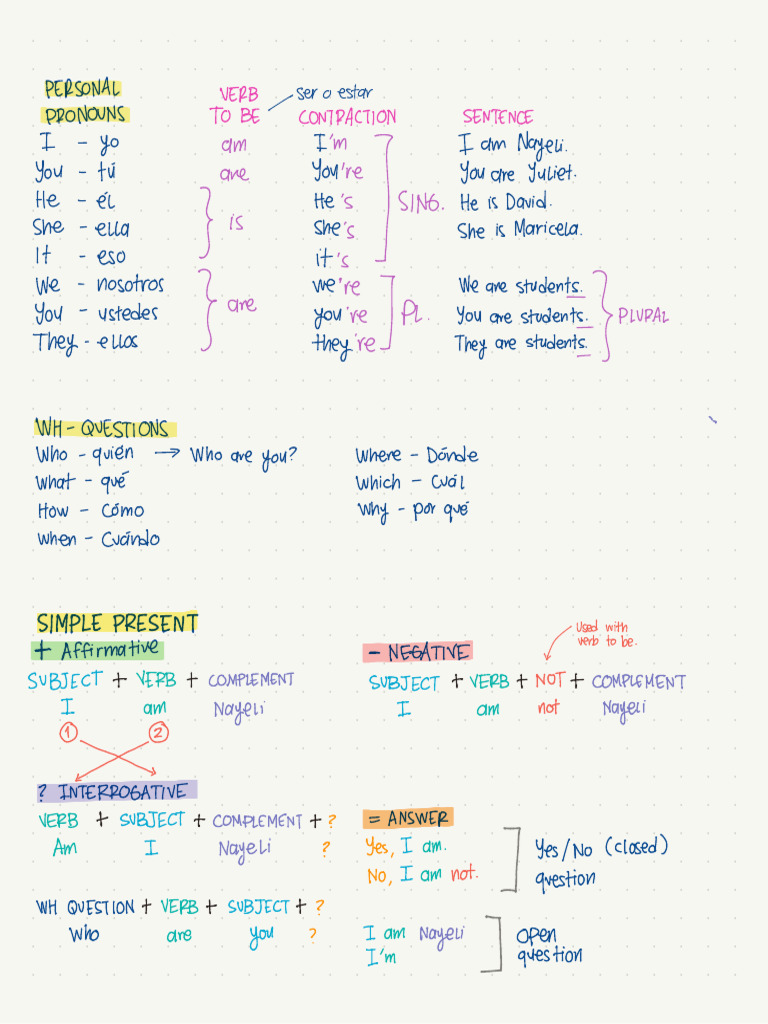 PERSONAL PRONOUNS
VERB TO BE
ser o estar
CONTRACTION
SENTENCE
I - yo am I'm I am Nayeli.
You - tú are You're You are Yuliet.
He - él He's SING. He is David.
She - ella is she's She is Maricela.
It - eso it's
We - nosotros we're We are students.
You - ustedes are you're PL. You are students. PLURAL
They - ellos they're They are students.
WH - QUESTIONS
Who - quién → Who are you? Where - Dónde
What - qué Which - Cuál
How - Cómo Why - por qué
When - Cuándo
SIMPLE PRESENT
+ Affirmative
SUBJECT + VERB + COMPLEMENT
I am Nayeli
1 2
Used with
verb to be.
- NEGATIVE
SUBJECT + VERB + NOT + COMPLEMENT
I am not Nayeli
? INTERROGATIVE
VERB + SUBJECT + COMPLEMENT + ?
Am I Nayeli ?
WH QUESTION + VERB + SUBJECT + ?
Who are you ?
= ANSWER
Yes, I am.
No, I am not.
Yes/No (closed)
question
I am Nayeli
I'm
open
question